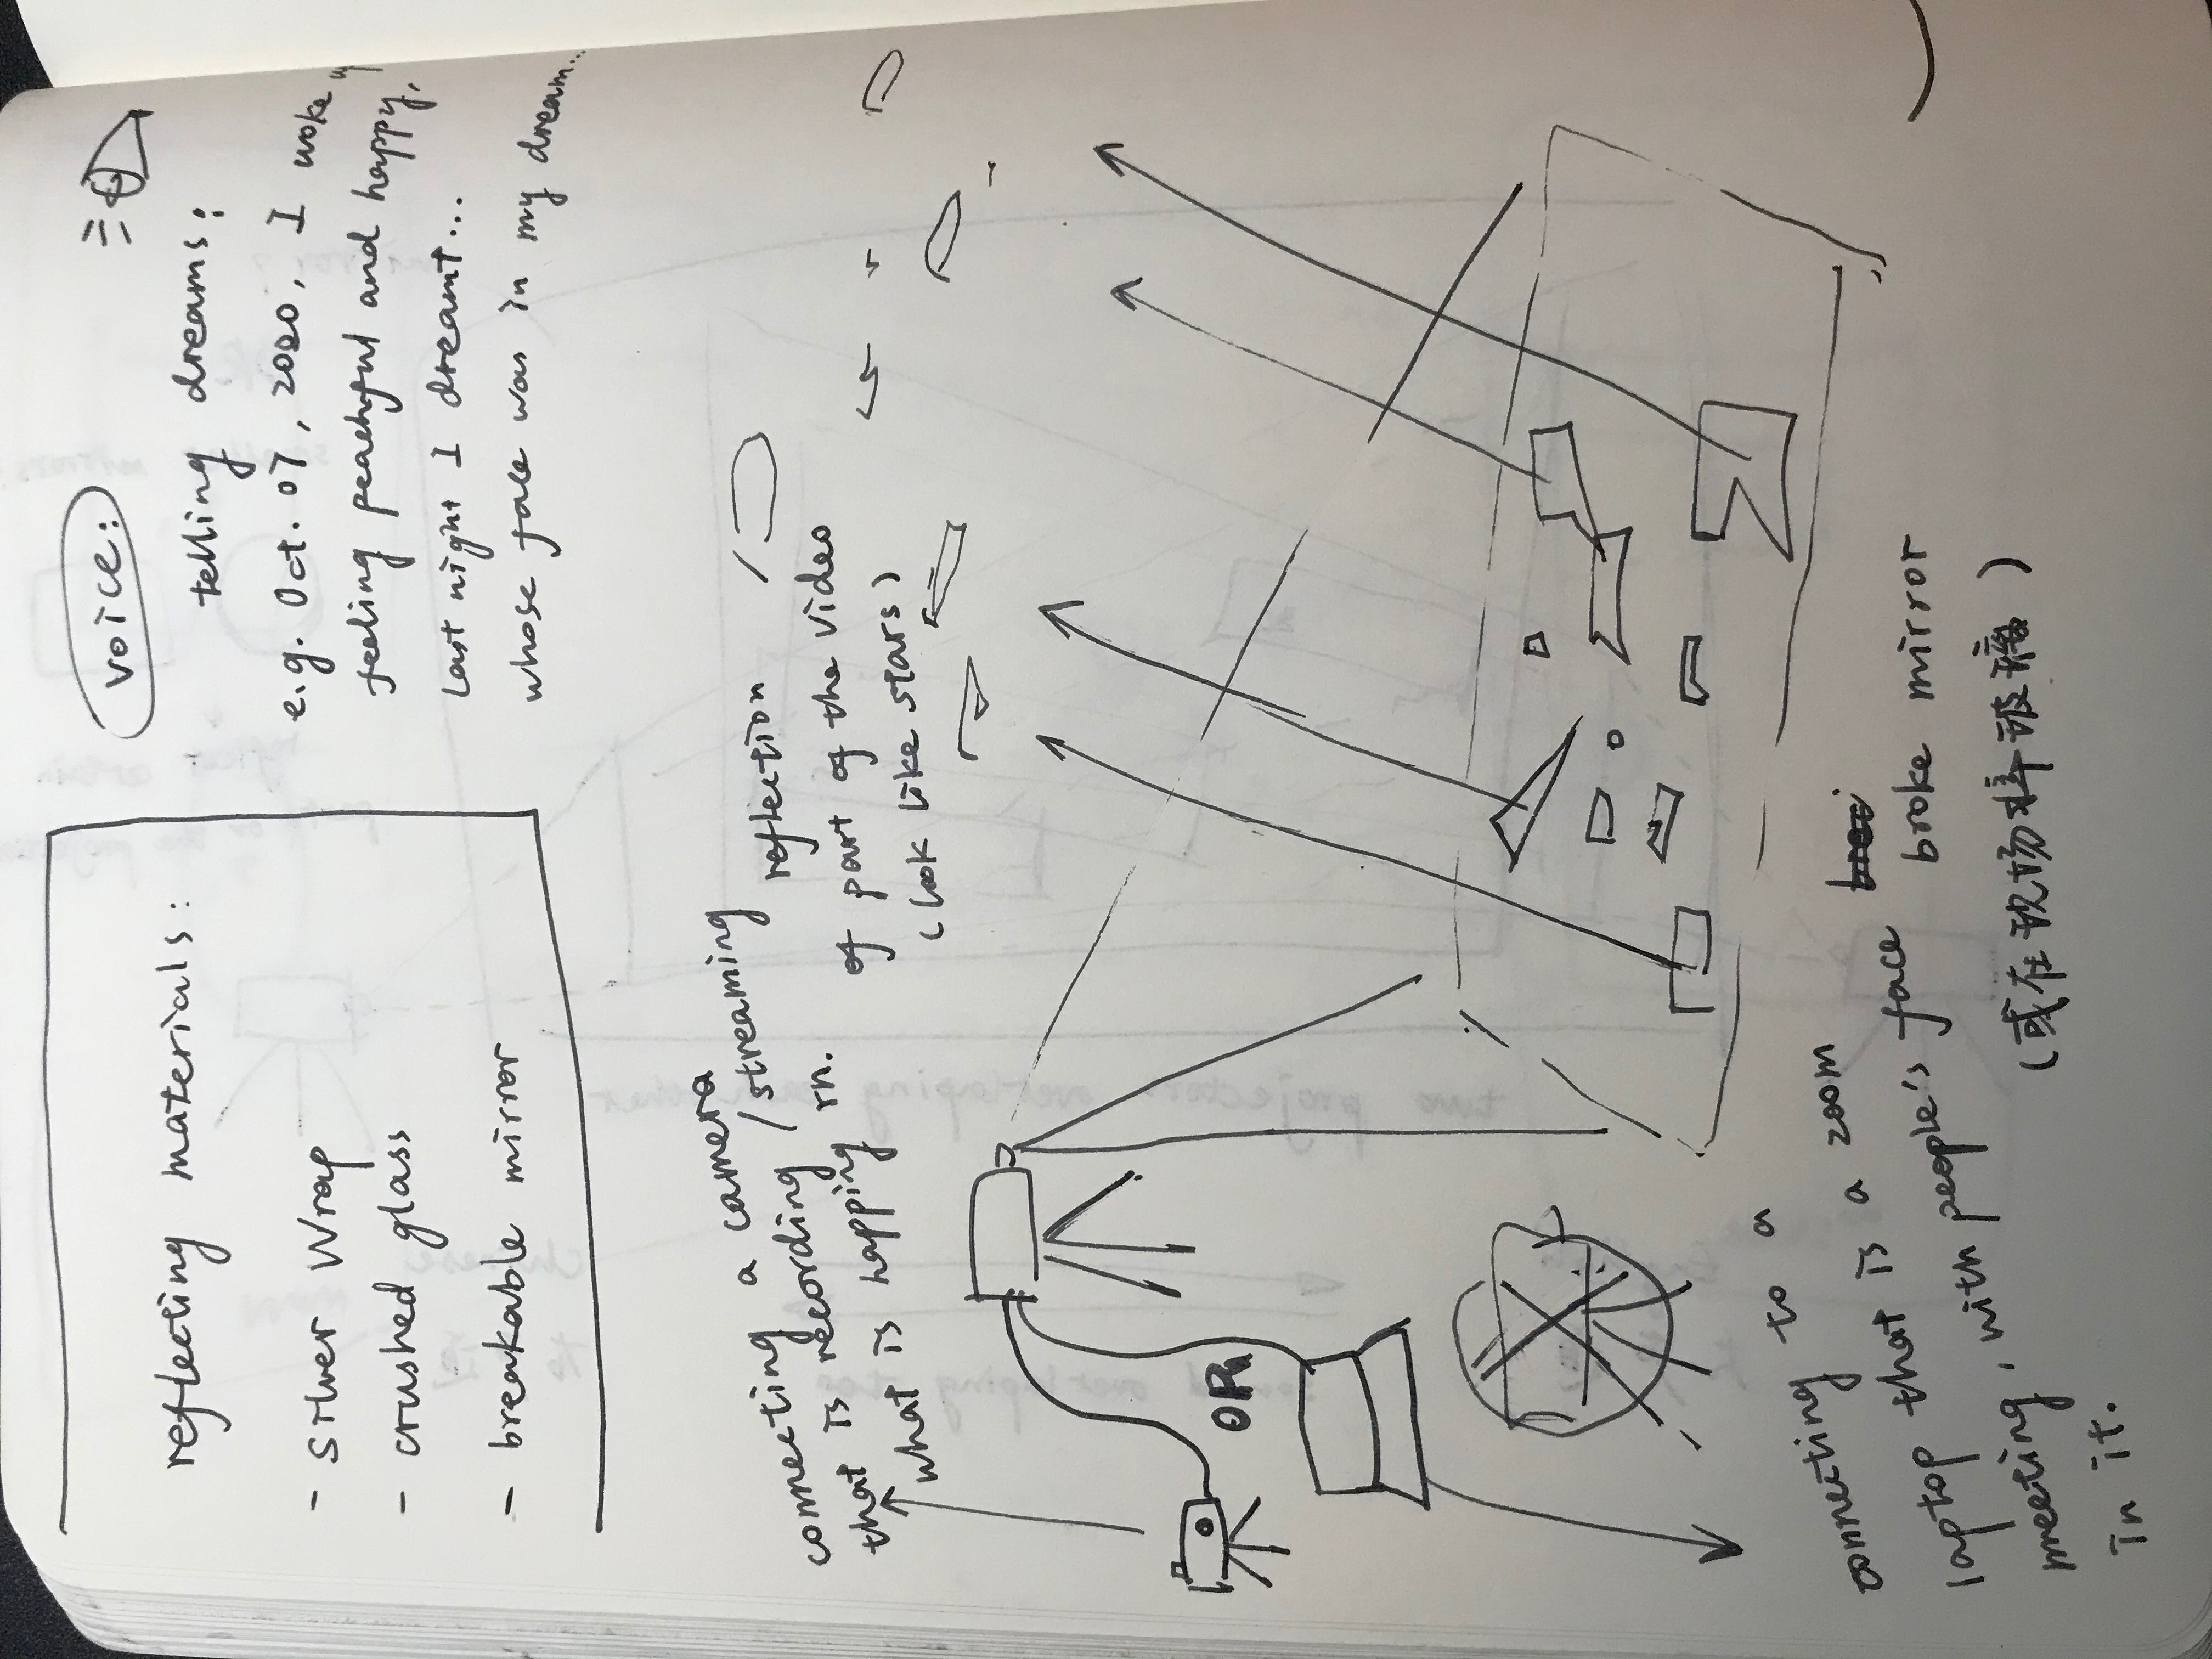 reflecting materials:
- silver wrap
- crushed glass
- breakable mirror
voice:
telling dreams:
e.g. Oct. 07, 2020, I woke up
feeling peachful and happy,
last night I dreamt...
whose face was in my dream...
connecting a camera
that is recording /streaming
what is happing rn.
reflection
of part of the video
(look like stars)
OR
connecting to a
laptop that is a zoom
meeting, with people's face
in it.
broke mirror
(或在现场摔玻璃)